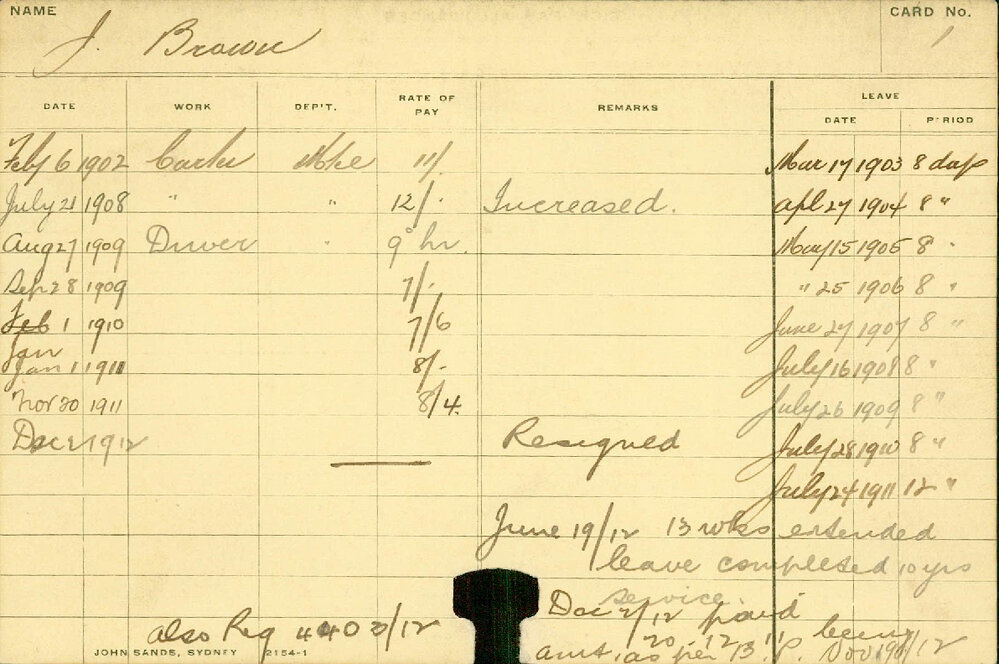 NAME CARD No.
J. Brown 1
LEAVE
DATE WORK DEP'T. RATE OF PAY REMARKS DATE PERIOD
Feby 6 1902 Carter 11/. Mar 17 1903 8 days
July 21 1908 " " 12/. Increased. apl 27 1904 8 "
Aug 27 1909 Driver " 9° hr. May 15 1905 8 "
Sep 28 1909 7/. " 25 1906 8 "
Feb 1 1910 7/6 June 27 1907 8 "
Jan
Jan 1 1911 8/- July 16 1908 8 "
Nov 20 1911 8/4. July 26 1909 8 "
Dec 2 1912 Resigned July 28 1910 8 "
July 24 1911 12 "
June 19/12 13 wks extended
leave completed 10 yrs
service.
Dec 2/12 paid
also Reg 12 20.12.11 being
amt. as per B.P. Nov 19/12
JOHN SANDS, SYDNEY 2154-1